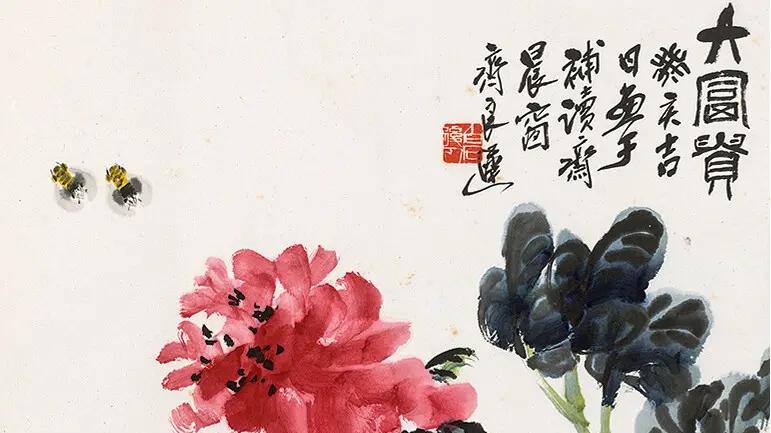 大富貴
癸亥吉
日畫于
補讀齋
晨窗
齊良遲